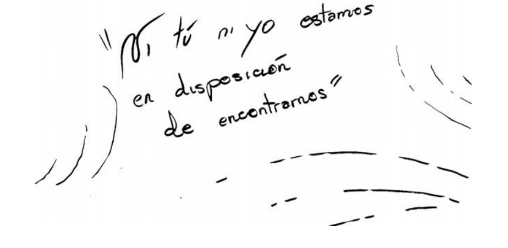 "Ni tú ni yo estamos
en disposición
de encontrarnos"